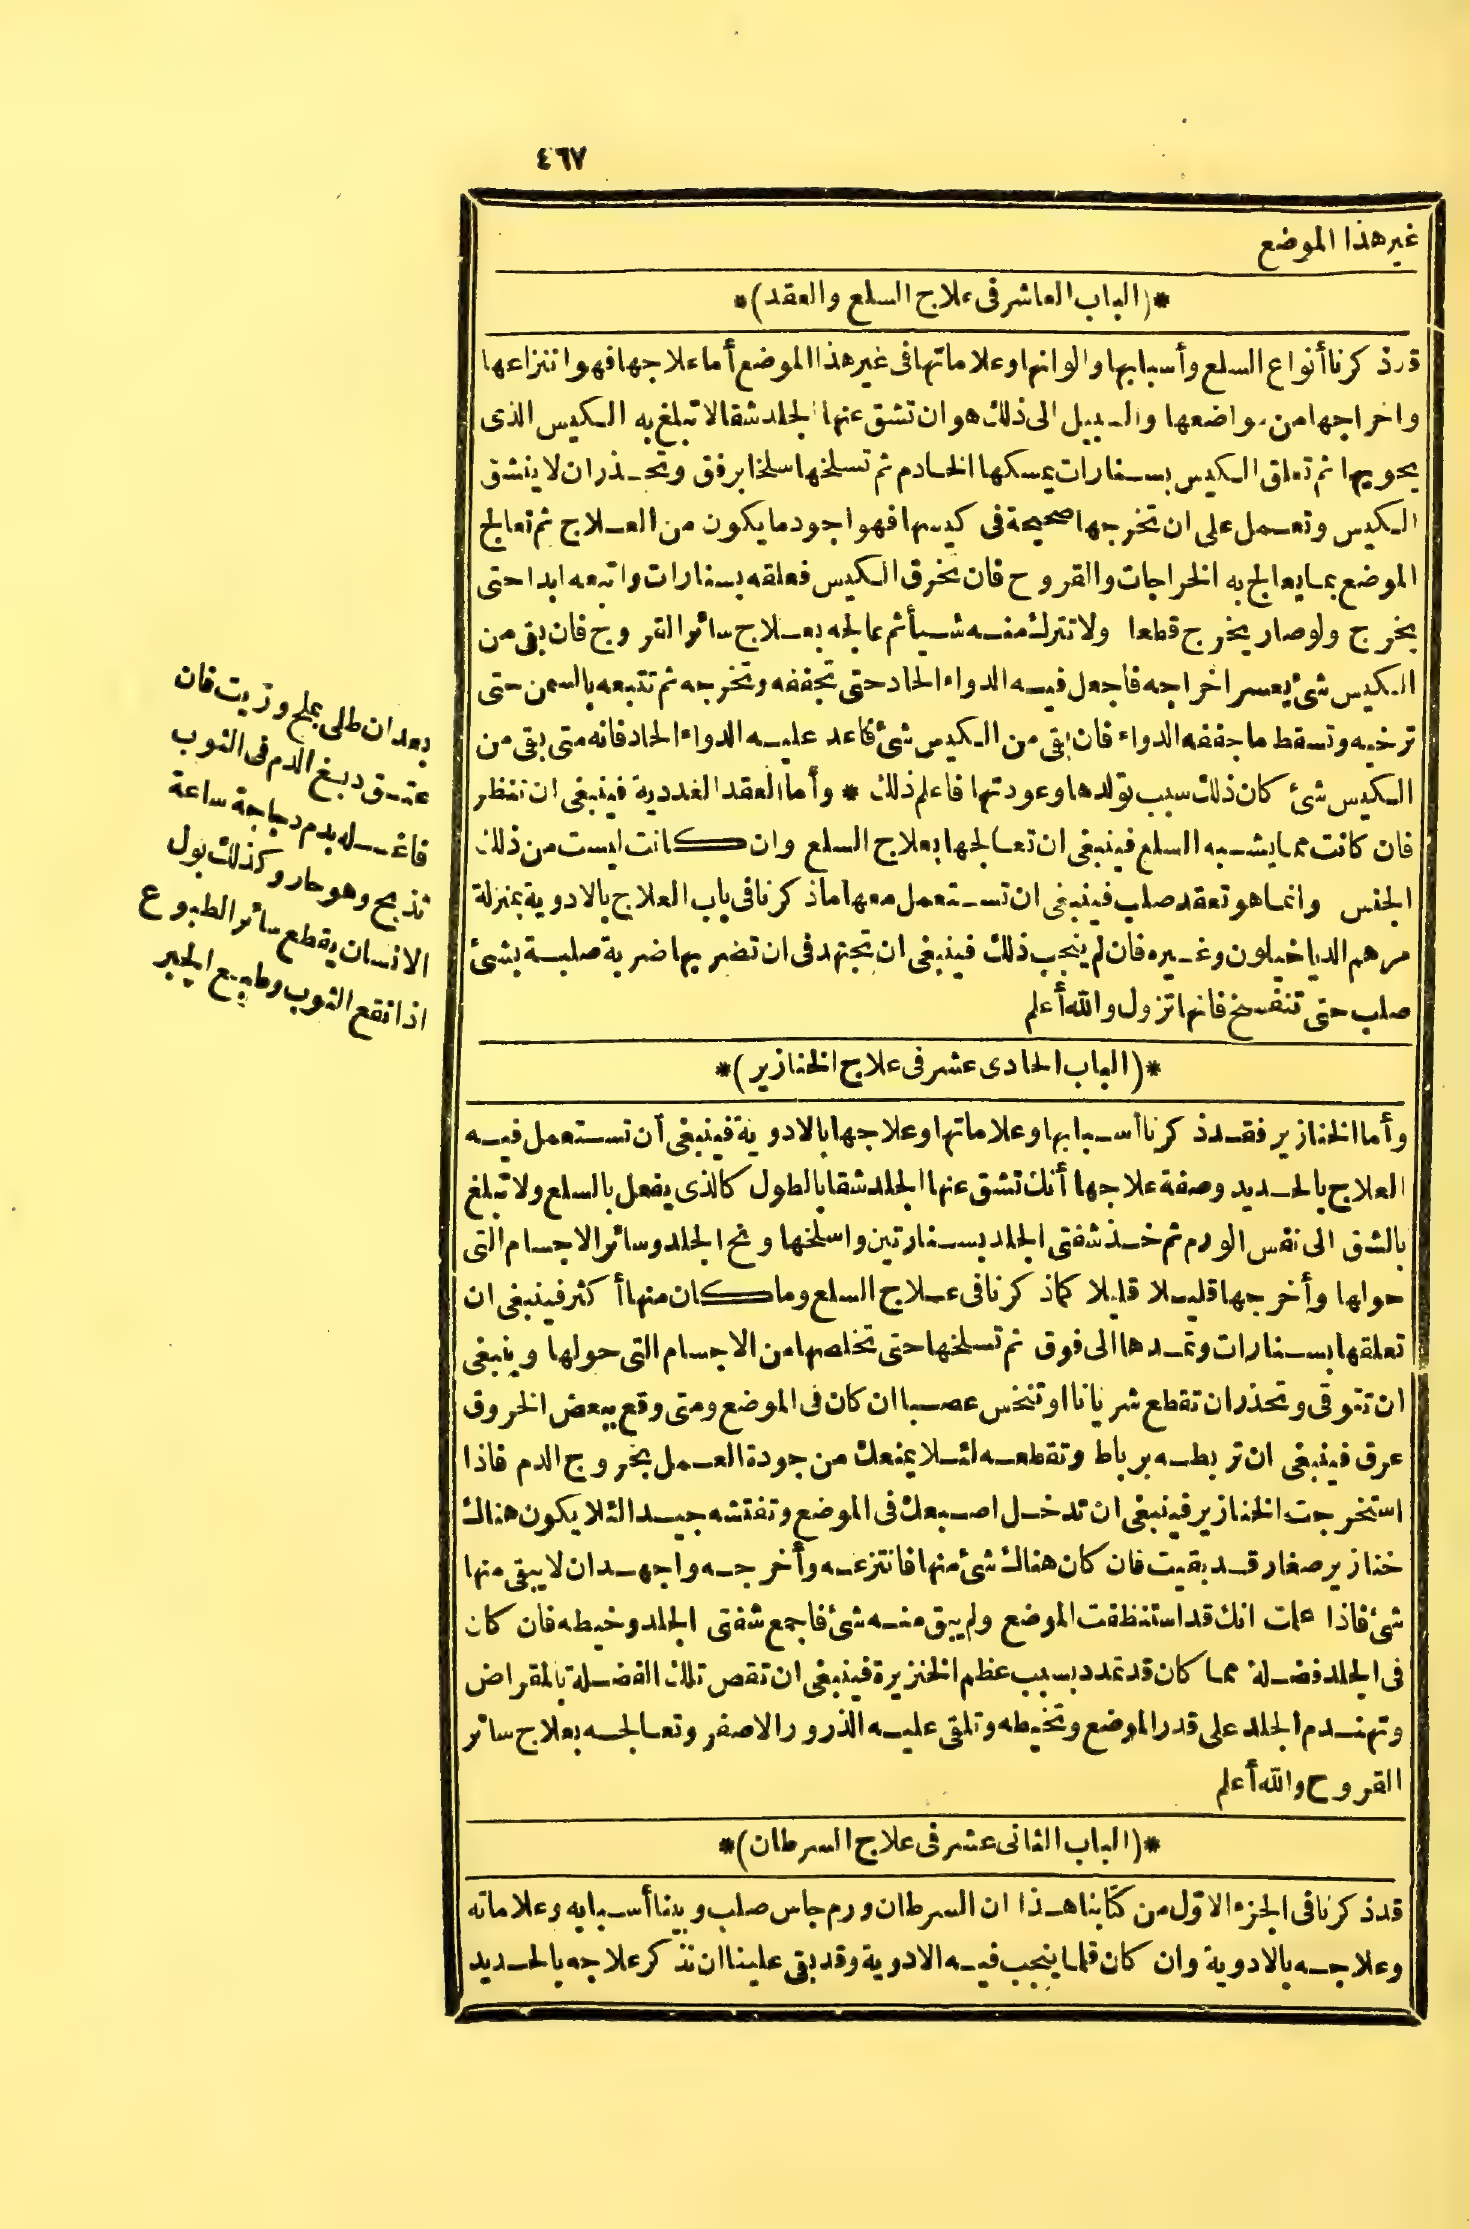 ٤٦٧
غير هذا الموضع
*(الباب العاشر فى علاج السلع والعقد)*
قد ذكرنا أنواع السلع وأسبابها والوانها وعلاماتها فى غير هذا الموضع أما علاجها فهو انتزاعها
واخراجها من مواضعها والسبيل الى ذلك هو ان تشق عنها الجلد شقا لا تبلغ به الكيس الذى
يحويها ثم تعلق الكيس بسنارات يمسكها الخادم ثم تسلخها سلخا برفق وتحذر ان لا ينشق
الكيس وتعمل على ان تخرجها صحيحة فى كيسها فهو اجود ما يكون من العلاج ثم تعالج
الموضع بما يعالج به الخراجات والقروح فان تخرق الكيس فعلقه بسنارات واتبعه ابدا حتى
يخرج ولو صار يخرج قطعا ولا تترك منه شيأ ثم عالجه بعلاج سائر القروح فان بقى من
الكيس شئ يعسر اخراجه فاجعل فيه الدواء الحاد حتى تجففه وتخرجه ثم تتبعه بالسمن حتى
ترخيه وتسقط ما جففه الدواء فان بقى من الكيس شئ فاعد عليه الدواء الحاد فانه متى بقى من
الكيس شئ كان ذلك سبب تولدها وعودتها فاعلم ذلك * وأما العقد الغددية فينبغى ان تنظر
فان كانت مما يشبه السلع فينبغى ان تعالجها بعلاج السلع وان كانت ليست من ذلك
الجنس وانما هو تعقد صلب فينبغى ان تستعمل معها ما ذكرنا فى باب العلاج بالادوية بمنزلة
مرهم الدياخيلون وغيره فان لم ينجب ذلك فينبغى ان تجتهد فى ان تضربها ضربة صلبة بشئ
صلب حتى تنفسخ فانها تزول والله أعلم
*(الباب الحادى عشر فى علاج الخنازير)*
وأما الخنازير فقد ذكرنا أسبابها وعلاماتها وعلاجها بالادوية فينبغى أن تستعمل فيه
العلاج بالحديد وصفة علاجها أنك تشق عنها الجلد شقا بالطول كالذى يفعل بالسلع ولا تبلغ
بالشق الى نفس الورم ثم خذ شفتى الجلد بسنارتين واسلخها ونح الجلد وسائر الاجسام التى
حولها وأخرجها قليلا قليلا كما ذكرنا فى علاج السلع وما كان منها أكثر فينبغى ان
تعلقها بسنارات وتمدها الى فوق ثم تسلخها حتى تخلصها من الاجسام التى حولها وينبغى
ان تتوقى وتحذر ان تقطع شريانا او تنخس عصبا ان كان فى الموضع ومتى وقع ببعض الخروق
عرق فينبغى ان تربطه برباط وتقطعه لئلا يمنعك من جودة العمل بخروج الدم فاذا
استخرجت الخنازير فينبغى ان تدخل اصبعك فى الموضع وتفتشه جيدا لئلا يكون هناك
خنازير صغار قد بقيت فان كان هناك شئ منها فانتزعه وأخرجه واجهد ان لا يبقى منها
شئ فاذا علمت انك قد استنظفت الموضع ولم يبق منه شئ فاجمع شفتى الجلد وخيطه فان كان
فى الجلد فضلة مما كان قد تمدد بسبب عظم الخنزيرة فينبغى ان تقص تلك الفضلة بالمقراض
وتهندم الجلد على قدر الموضع وتخيطه وتلقى عليه الذرور الاصفر وتعالجه بعلاج سائر
القروح والله أعلم
*(الباب الثانى عشر فى علاج السرطان)*
قد ذكرنا فى الجزء الاوّل من كتابنا هذا ان السرطان ورم جاس صلب وبينا أسبابه وعلاماته
وعلاجه بالادوية وان كان قلما ينجب فيه الادوية وقد بقى علينا ان نذكر علاجه بالحديد
بعد ان طلى بملح وزيت فان
عتق دبغ الدم فى الثوب
فاغسله بدم دجاجة ساعة
تذبح وهو حار وكذلك بول
الانسان يقطع سائر الطبوع
اذا نقع الثوب وطبع الحبر